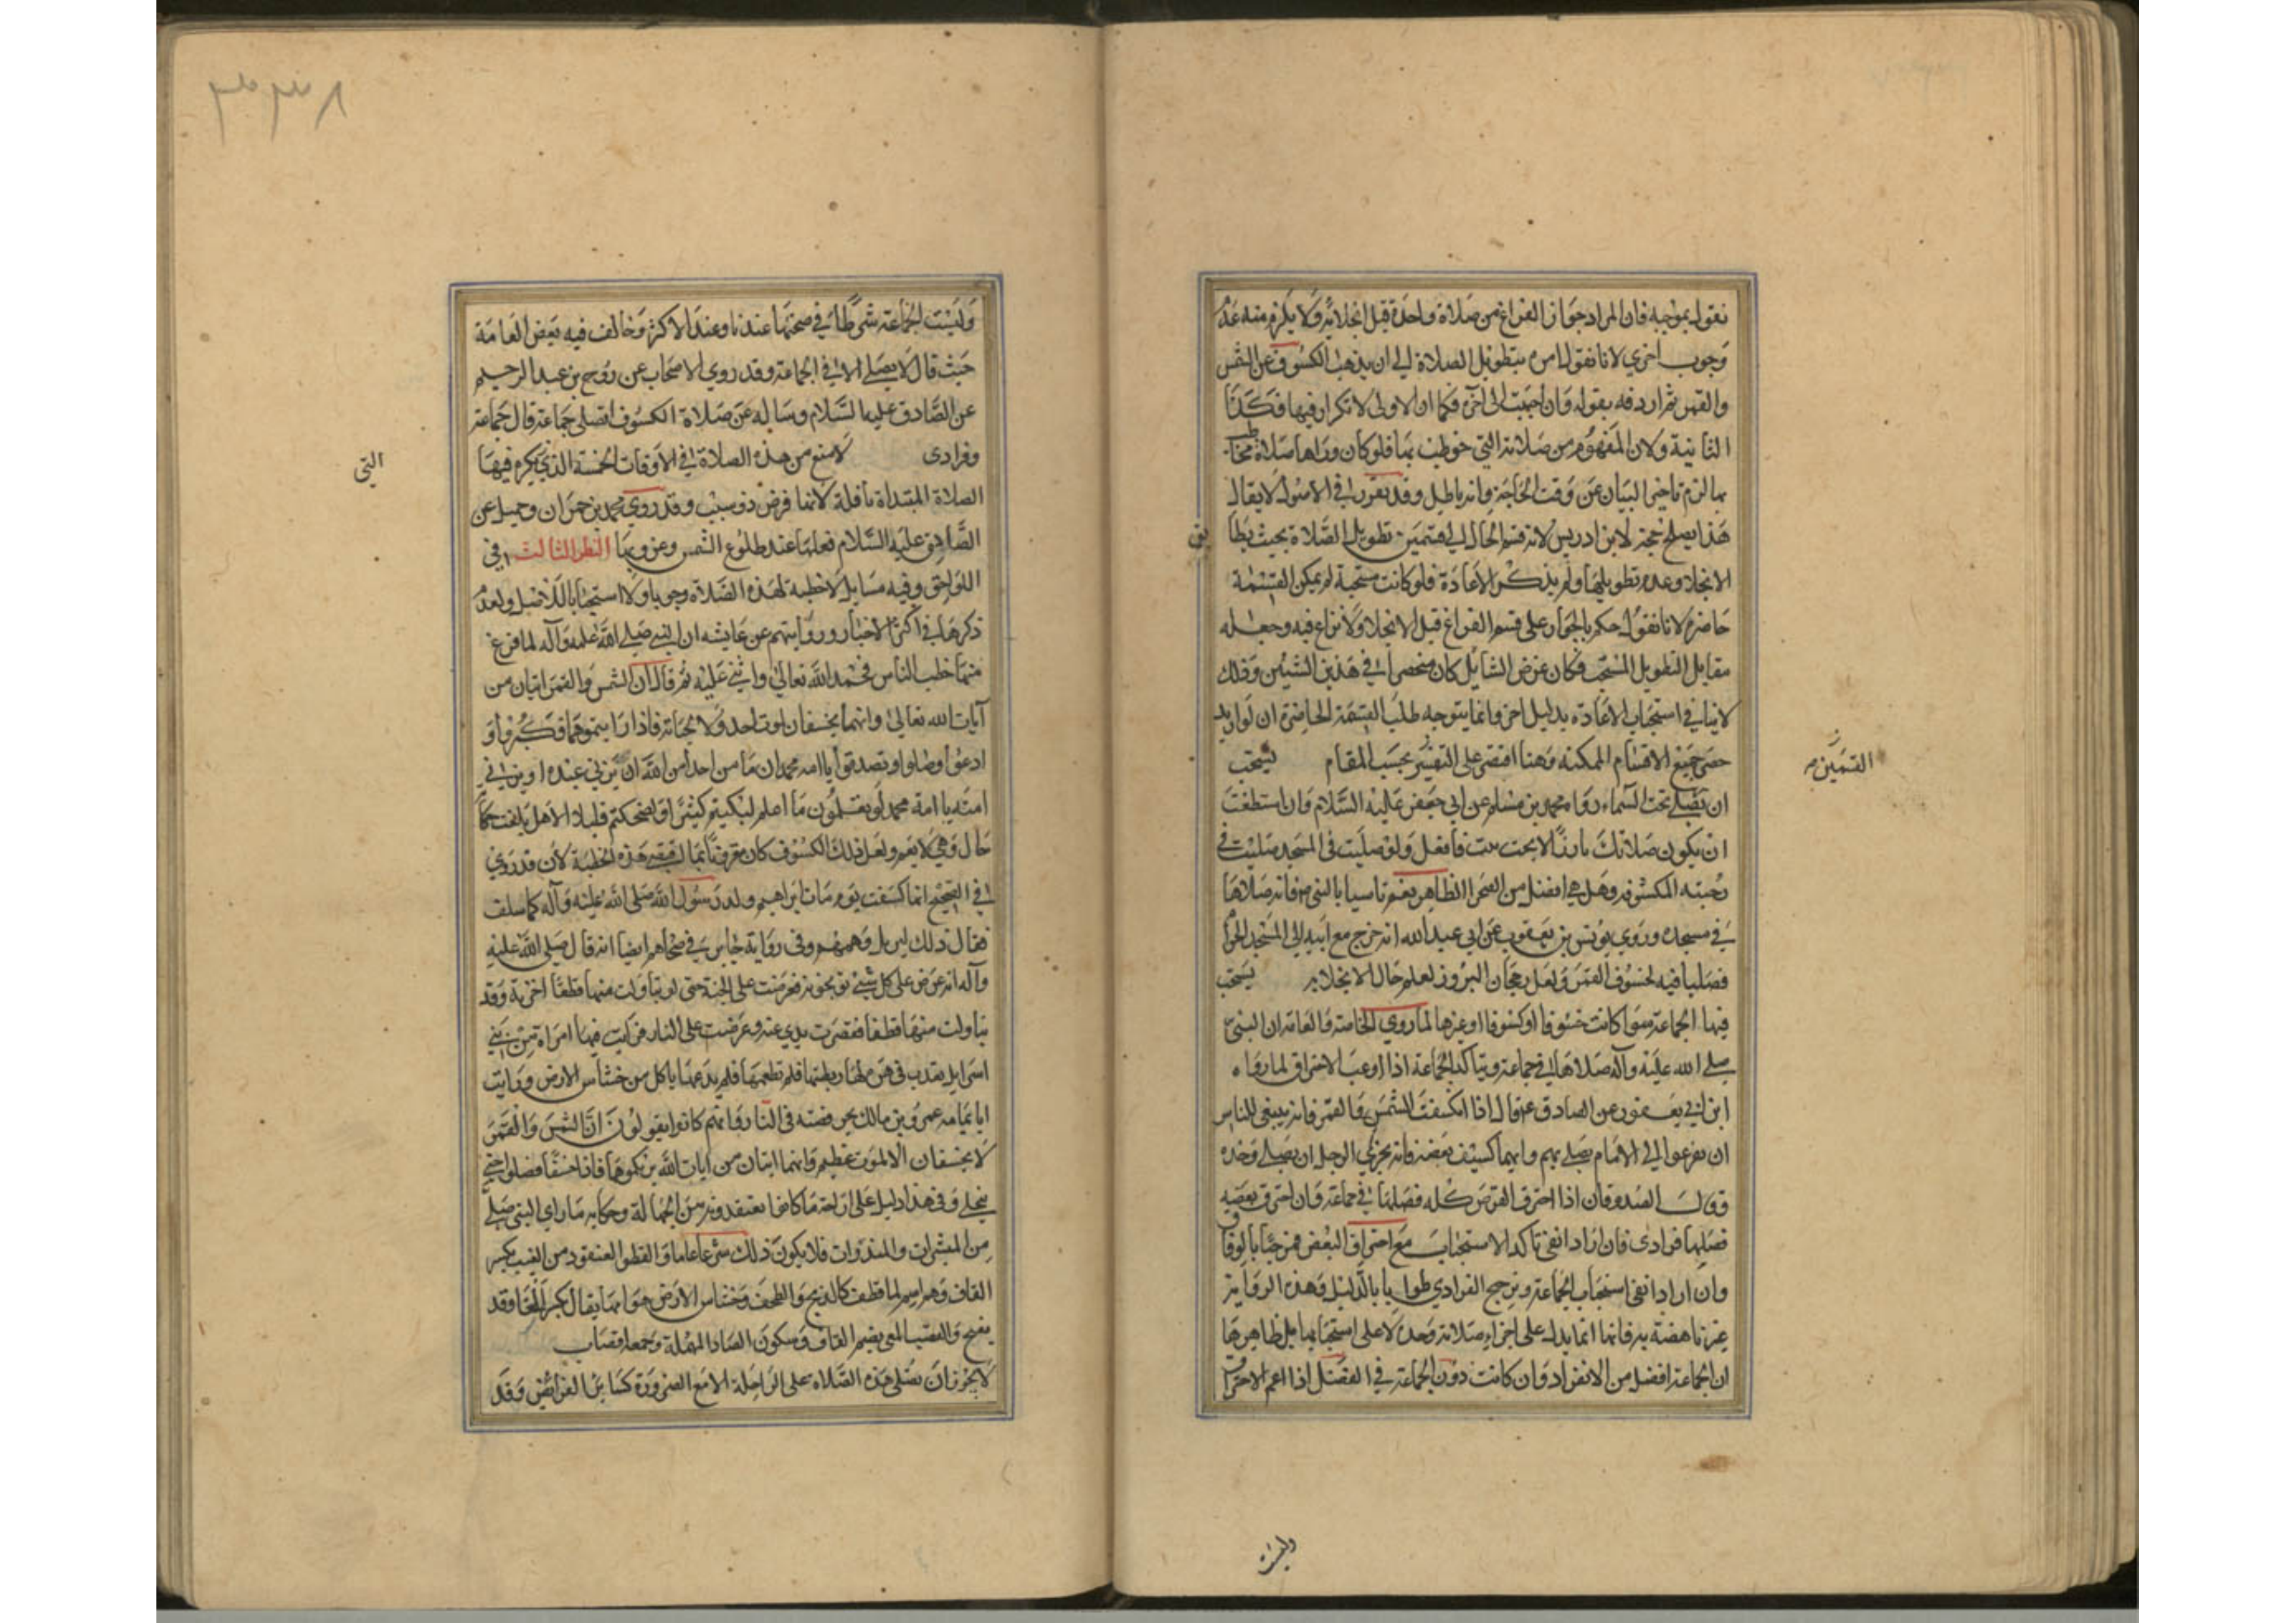 نقول بموجبه فان المراد جواز الفراغ من صلاة واحدة قبل انجلائه ولا يلزم منه عدم
وجوب اخرى لانا نقول امره بتطويل الصلاة الى ان يذهب الكسوف عن الشمس
والقمر ثم اردفه بقوله وان احببت الى آخره فكما ان الاولى لا تكرار فيها فكذا
الثانية ولان المفهوم من صلاته التي خوطب بها فلو كان وراها صلاة مخاطب
بها لزم تاخير البيان عن وقت الحاجة وانه باطل وقد تقرر في الاصول لا يقال
هذا يصلح حجة لابن ادريس لانه قسم الحال الى قسمين تطويل الصلاة بحيث يطابق
الانجلا وعدم تطويلها ولم يذكر الاعادة فلو كانت مستحبة لم يمكن القسمة
حاضرة لانا نقول حكم بالجواز على قسم الفراغ قبل الانجلا ولا نزاع فيه وجعله
مقابل التطويل المستحب فكان غرض السائل كان منحصرا في هذين الشيئين وذلك
لا ينافي استحباب الاعادة بدليل اخر وانما يتوجه طلب القسمة الحاضرة ان لو اريد
حصر جميع الاقسام الممكنة وهنا اقتصر على التفسير بحسب المقام يستحب
القسمين
ان يصلي تحت السماء رواه محمد بن مسلم عن ابي جعفر عليه السلام وان استطعت
ان يكون صلاتك بارزا لا يجنك بيت فافعل ولو صليت في المسجد صليت في
رحبته المكشوفة وهل هي افضل من الصحرا الظاهر نعم تاسيا بالنبي ص فانه صلاها
في مسجده وروى يونس بن يعقوب عن ابي عبد الله انه خرج مع ابيه الى المسجد الحرام
فصليا فيه لخسوف القمر ولعل رجحان البروز لعلم حال الانجلا به يستحب
فيها الجماعة سوا كانت خسوفا او كسوفا او غيرها لما روى الخاصة والعامة ان النبي
صلى الله عليه وآله صلاها في جماعة ويتاكد الجماعة اذا اوعب الاحتراق لما رواه
ابن ابي يعفور عن الصادق ع قال اذا انكسفت الشمس والقمر فانه ينبغي للناس
ان يفزعوا الى الامام يصلي بهم وايهما كسف بعضه فانه يجزي الرجل ان يصلي وحده
وقول الصدوقان اذا احترق القرص كله فصلها في جماعة وان احترق بعضه
فصلها فرادى فان اراد انفي تاكد الاستحباب مع احتراق البعض فمرحبا بالوفاق
وان ارادا نفي استحباب الجماعة وترجح الفرادي طولبا بالدليل وهذه الرواية
غير ناهضة به فانها انما يدل على اجزاء صلاته وحده لا على استحبابها بل ظاهرها
ان الجماعة افضل من الانفراد وان كانت دون الجماعة في الفضل اذا اعم الاحتراق
وليست
٣٣٨
وليست الجماعة شرطا في صحتها عندنا وعند الاكثر وخالف فيه بعض العامة
حيث قال لا يصلي الا في الجماعة وقد روي الاصحاب عن روح بن عبد الرحيم
عن الصادق عليه السلام وساله عن صلاة الكسوف اتصلى جماعة قال جماعة
وفرادى لا منع من هذه الصلاة في الاوقات الخمسة الذي يكره فيها
التي
الصلاة المبتداة نافلة لانها فرض ذو سبب وقد روي محمد بن حمران وجميل عن
الصادق عليه السلام فعلها عند طلوع الشمس وغروبها النظر الثالث في
اللواحق وفيه مسايل لا خطبة لهذه الصلاة وجوبا ولا استحبابا للاصل ولعدم
ذكرها في اكثر الاخبار وروايتهم عن عايشه ان النبي صلى الله عليه وآله لما فرغ
منها خطب الناس فحمد الله تعالى واثنى عليه ثم قال ان الشمس والقمر ايتان من
آيات الله تعالى وانهما يخسفان لموت احد ولا لحياته فاذا رايتموهما فكبروا و
ادعوا وصلوا وتصدقوا يا امه محمد ان ما من احد امن الله ان يزني عبده او يزني في
امته يا امة محمد لو تعلمون ما اعلم لبكيتم كثيرا ولضحكتم قليلا الا هل بلغت حكاية
حال وهي لا تعم ولعل ذلك الكسوف كان مقرونا بما يقتضي هذه الخطبة لان قد روي
في الصحيح انها كسفت يوم مات ابراهيم ولد رسول الله صلى الله عليه وآله كما سلف
فقال ذلك ليزيل وهمهم وفي رواية جابر في صحاحهم ايضا انه قال صلى الله عليه
وآله انه عرض على كل شيء توعدونه فعرضت على الجنة حتى لو تناولت منها قطفا اخذته وقد
تناولت منها قطفا فقصرت يدي عنه وعرضت على النار فرايت فيها امراة من بني
اسرايل تعذب في هرة لها ربطتها فلم تطعمها فلم يدعها ياكل من خشاش الارض ورايت
ابا ثمامه عمرو بن مالك يجر قصبه في النار وانهم كانوا يقولون ان الشمس والقمر
لا يخسفان الا لموت عظيم وانهما ايتان من آيات الله يريكموها فاذا خسفا فصلوا حتى
ينجلي وفي هذا دليل على ازاحة ما كانوا يعتقدونه من الجهالة وحكايه ما راى النبي صلى
من المبشرات والمنذرات فلا يكون ذلك شرعا عاما والقطف العنقود من العنب بكسر
القاف وهو اسم لما قطف كالذبح والطحن وخشاش الارض هوامها يقال بكسر الخا وقد
يفتح والقصب المعى بضم القاف وسكون الصاد المهملة وجمعه اقصاب
لا يجوز ان تصلى هذه الصلاه على الراحلة الا مع الضرورة كساير الفرائض وقد